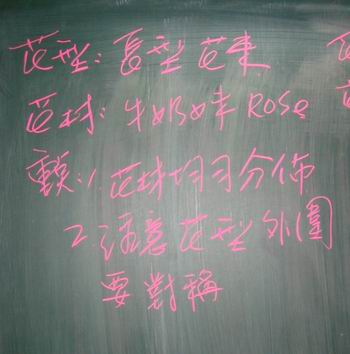 花型：長型花束
花材：牛奶妹 ROSe
重點：1. 花材均勻分佈
2. 注意花型外圍
要對稱